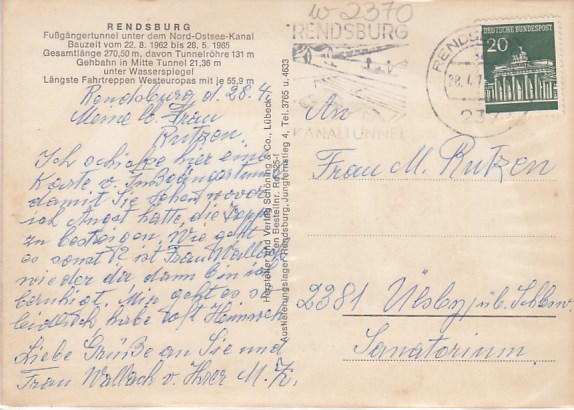 RENDSBURG
Fußgängertunnel unter dem Nord-Ostsee-Kanal
Bauzeit vom 22. 8. 1962 bis 28. 5. 1965
Gesamtlänge 270,50 m, davon Tunnelröhre 131 m
Gehbahn in Mitte Tunnel 21,36 m
unter Wasserspiegel
Längste Fahrtreppen Westeuropas mit je 55,9 m
Rendsburg d. 28.4.
Meine lb. Frau
Rutzen.
Ich schicke hier eine
Karte v.
damit Sie sehen wovor
ich Angst hatte, die Treppe
zu besteigen. Wie geht
es sonst? ist Frau Wallach
wieder da dann bin ich
beruhigt. Mir geht es so
leidlich, habe oft Heimweh
Liebe Grüße an Sie und
Frau Wallach v. Ihrer M. Z.
Hersteller und Verlag Schöning & Co., Lübeck
Auslieferungslager Rendsburg, Jungfernstieg 4, Tel. 3765 u. 4633
2370
RENDSBURG
KANALTUNNEL
RENDSBURG
28.4.7
237
DEUTSCHE BUNDESPOST
20
An
Frau M. Rutzen
2381 Ülsby üb. Schlesw.
Sanatorium.